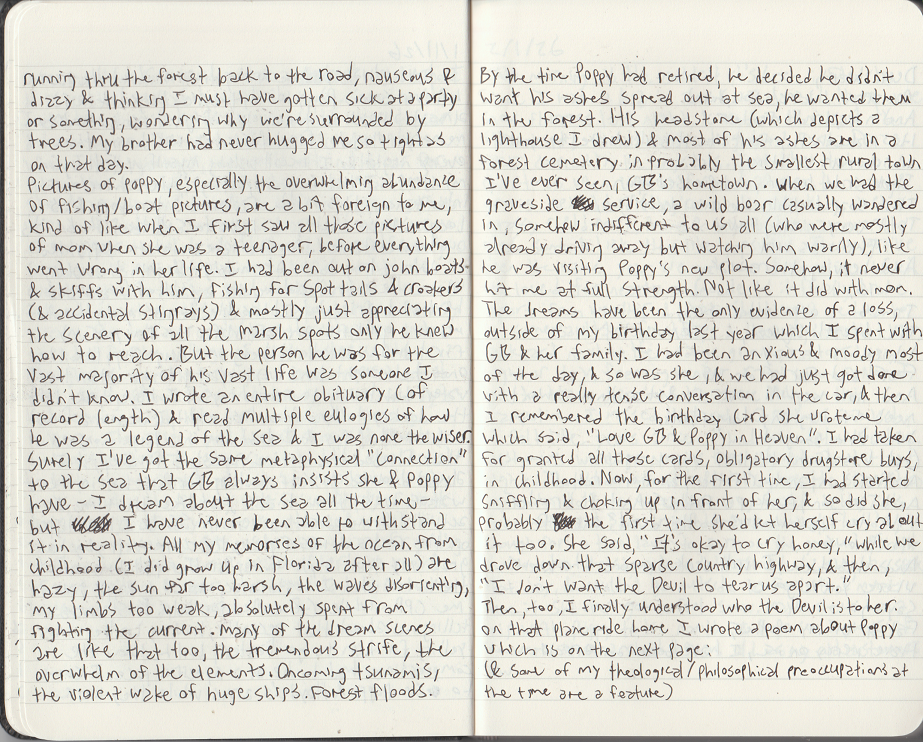 running thru the forest back to the road, nauseous &
dizzy & thinking I must have gotten sick at a party
or something, wondering why we're surrounded by
trees. My brother had never hugged me so tight as
on that day.
Pictures of poppy, especially the overwhelming abundance
of fishing/boat pictures, are a bit foreign to me,
kind of like when I first saw all those pictures
of mom when she was a teenager, before everything
went wrong in her life. I had been out on john boats
& skiffs with him, fishing for spot tails & croakers
(& accidental stingrays) & mostly just appreciating
the scenery of all the marsh spots only he knew
how to reach. But the person he was for the
vast majority of his vast life was someone I
didn't know. I wrote an entire obituary (of
record length) & read multiple eulogies of how
he was a legend of the sea & I was none the wiser.
Surely I've got the same metaphysical "connection"
to the sea that GB always insists she & Poppy
have - I dream about the sea all the time -
but I have never been able to withstand
it in reality. All my memories of the ocean from
childhood (I did grow up in Florida after all) are
hazy, the sun far too harsh, the waves disorienting,
my limbs too weak, absolutely spent from
fighting the current. Many of the dream scenes
are like that too, the tremendous strife, the
overwhelm of the elements. Oncoming tsunamis,
the violent wake of huge ships. Forest floods.
By the time Poppy had retired, he decided he didn't
want his ashes spread out at sea, he wanted them
in the forest. His headstone (which depicts a
lighthouse I drew) & most of his ashes are in a
forest cemetery in probably the smallest rural town
I've ever seen, GB's hometown. When we had the
graveside service, a wild boar casually wandered
in, somehow indifferent to us all (who were mostly
already driving away but watching him warily), like
he was visiting Poppy's new plot. Somehow, it never
hit me at full strength. Not like it did with mom.
The dreams have been the only evidence of a loss,
outside of my birthday last year which I spent with
GB & her family. I had been anxious & moody most
of the day, & so was she, & we had just got done
with a really tense conversation in the car, & then
I remembered the birthday card she wrote me
which said, "Love GB & Poppy in Heaven". I had taken
for granted all those cards, obligatory drugstore buys,
in childhood. Now, for the first time, I had started
sniffling & choking up in front of her, & so did she,
probably the first time she'd let herself cry about
it too. She said, "It's okay to cry honey," while we
drove down that sparse country highway, & then,
"I don't want the Devil to tear us apart."
Then, too, I finally understood who the Devil is to her.
On that plane ride home I wrote a poem about Poppy
which is on the next page:
(& some of my theological/philosophical preoccupations at
the time are a feature)